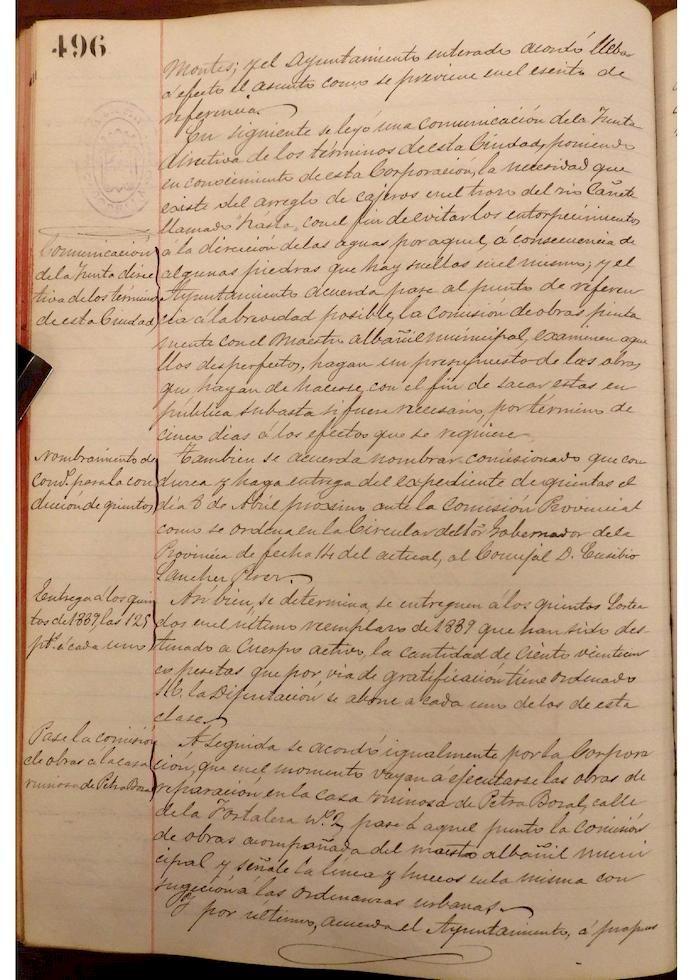 496
Montes; y el Ayuntamiento enterado acordó llebar
á efecto el asunto como se previene en el escrito de
referencia.
En siguiente se leyó una comunicación de la Junta
directiva de los términos de esta Ciudad, poniendo
en conocimiento de esta Corporación, la necesidad que
existe del arreglo de cajeros en el trozo del rio Cañete
llamado Rasta, con el fin de evitar los entorpecimientos
á la dirección de las aguas por aquel, á consecuencia de
algunas piedras que hay sueltas en el mismo; y el
Ayuntamiento acuerda pase al punto de referen
cia á la brevedad posible, la comisión de obras junta
mente con el Maestro albañil municipal, examinen aque
llos desperfectos, hagan un presupuesto de las obras
que hayan de hacerse, con el fin de sacar estas en
pública subasta si fuere necesario, por término de
cinco dias á los efectos que se requiere.
Comunicación
de la Junta direc
tiva de los términos
de esta Ciudad
Nombramiento de
para la con
ducción de quintos
Tambien se acuerda nombrar comisionado que con
duzca y haga entrega del expediente de quintas el
día 8 de Abril proximo ante la Comisión Provincial
como se ordena en la Circular del Sôr Gobernador de la
Provincia de fecha 14 del actual, al Concejal D. Eusebio
Sanchez
Entrega á los quin
tos de 1889, las 125
pts. á cada uno
Asi bien, se determina, se entreguen a los quintos Sortea
dos en el último reemplazo de 1889 que han sido des
tinado a Cuerpo activo, la cantidad de Ciento veinticin
co pesetas que por via de gratificación tiene ordenado
la Diputación se abone a cada uno de los de esta
clase.
Pase la comisión
de obras á la casa
ruinosa de Petra Boral
A seguida se acordó igualmente por la Corpora
ción, que en el momento vayan a ejecutarse las obras de
reparación en la casa ruinosa de Petra Boral, calle
de la Fortalera nº 2, pase á aquel punto la Comisión
de obras acompañada del maestro albañil muni
cipal y señale la línea y huecos en la misma con
sugeción á las ordenanzas urbanas.
Y por ultimo, acuerda el Ayuntamiento, á propues